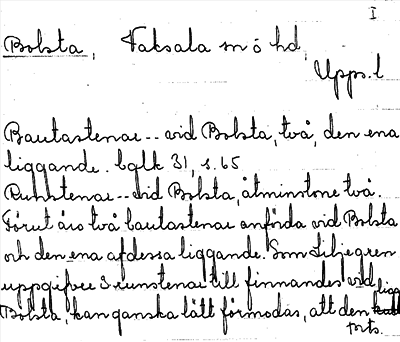 I
Bolsta, Vaksala sn ö hd,
Upps. l
Bautastenar -- vid Bolsta, två, den ena
liggande. balk 31, s. 65
Runstenar -- vid Bolsta, åtminstone två.
Förut äro två bautastenar anförda vid Bolsta
och den ena af dessa liggande. Som Liljegren
uppgifver 3 runstenar till finnandes vid
Bolsta, kan ganska lätt förmodas, att den ligg
forts.